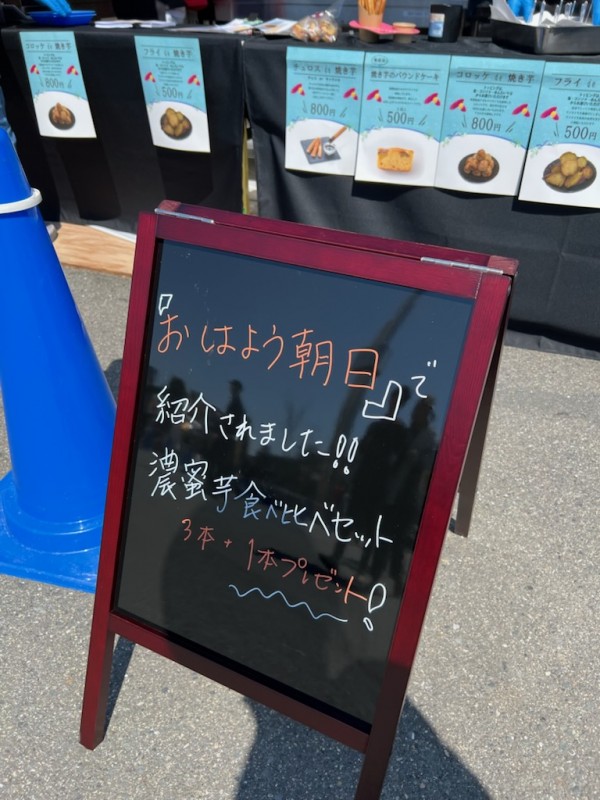 コロッケ de 焼き芋
800円
フライ de 焼き芋
500円
チュロス de 焼き芋
800円
焼き芋のパウンドケーキ
500円
コロッケ de 焼き芋
800円
フライ de 焼き芋
500円
『おはよう朝日』で
紹介されました!!
濃蜜芋食べ比べセット
3本+1本プレゼント!